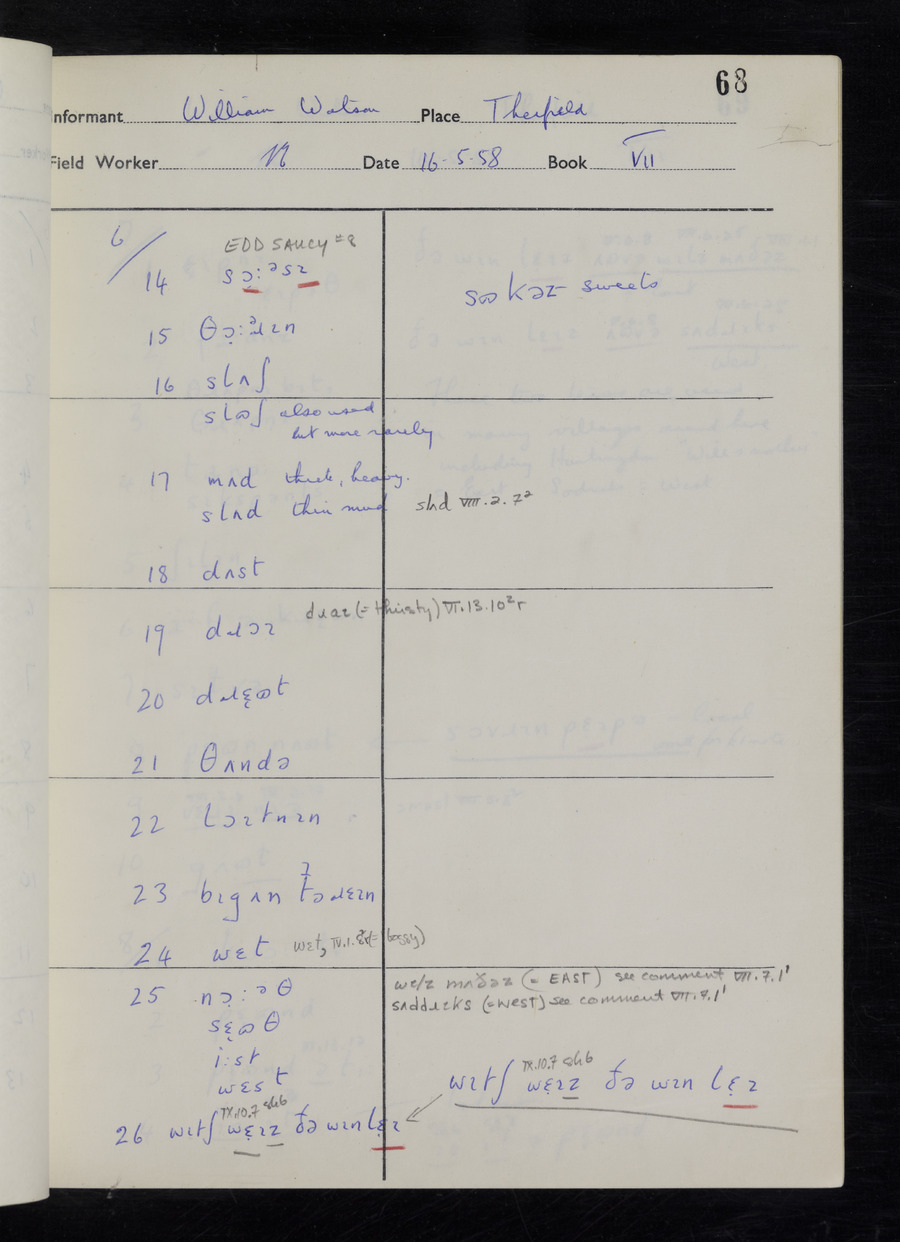 68
Informant William Watson Place Therfield
Field Worker N Date 16.5.58 Book VII
6/
EDD SAUCY #8
14 sɔ̣:ᵊsɪ
sɷkəz sweets
15 θɔ̣:ᵊɹɪn
16 slʌʃ
slɷʃ also used
but more rarely
17 mʌd thick, heavy.
slʌd thin mud
slʌd VIII.2.7²
18 dʌst
dɹaɪ (= thirsty) VI.13.10² r
19 dɹɔɪ
20 dɹɛ̣ɷt
21 θʌndə
22 lɔɪtnɪn
23 bɪgʌn tə ɹɛɪn
24 wɛt
25 nɔ̣:əθ
sɛ̣ɷθ
i:st
wɛst
(= EAST) see comment VII.7.1'
sʌddɹɪks (= WEST) see comment VII.7.1'
IX.10.7
wɪtʃ wɛ̣ɪz ðə wɪn lɛ̣ɪ
IX.10.7
26 wɪtʃ wɛ̣ɪz ðə wɪn lɛ̣ɪ